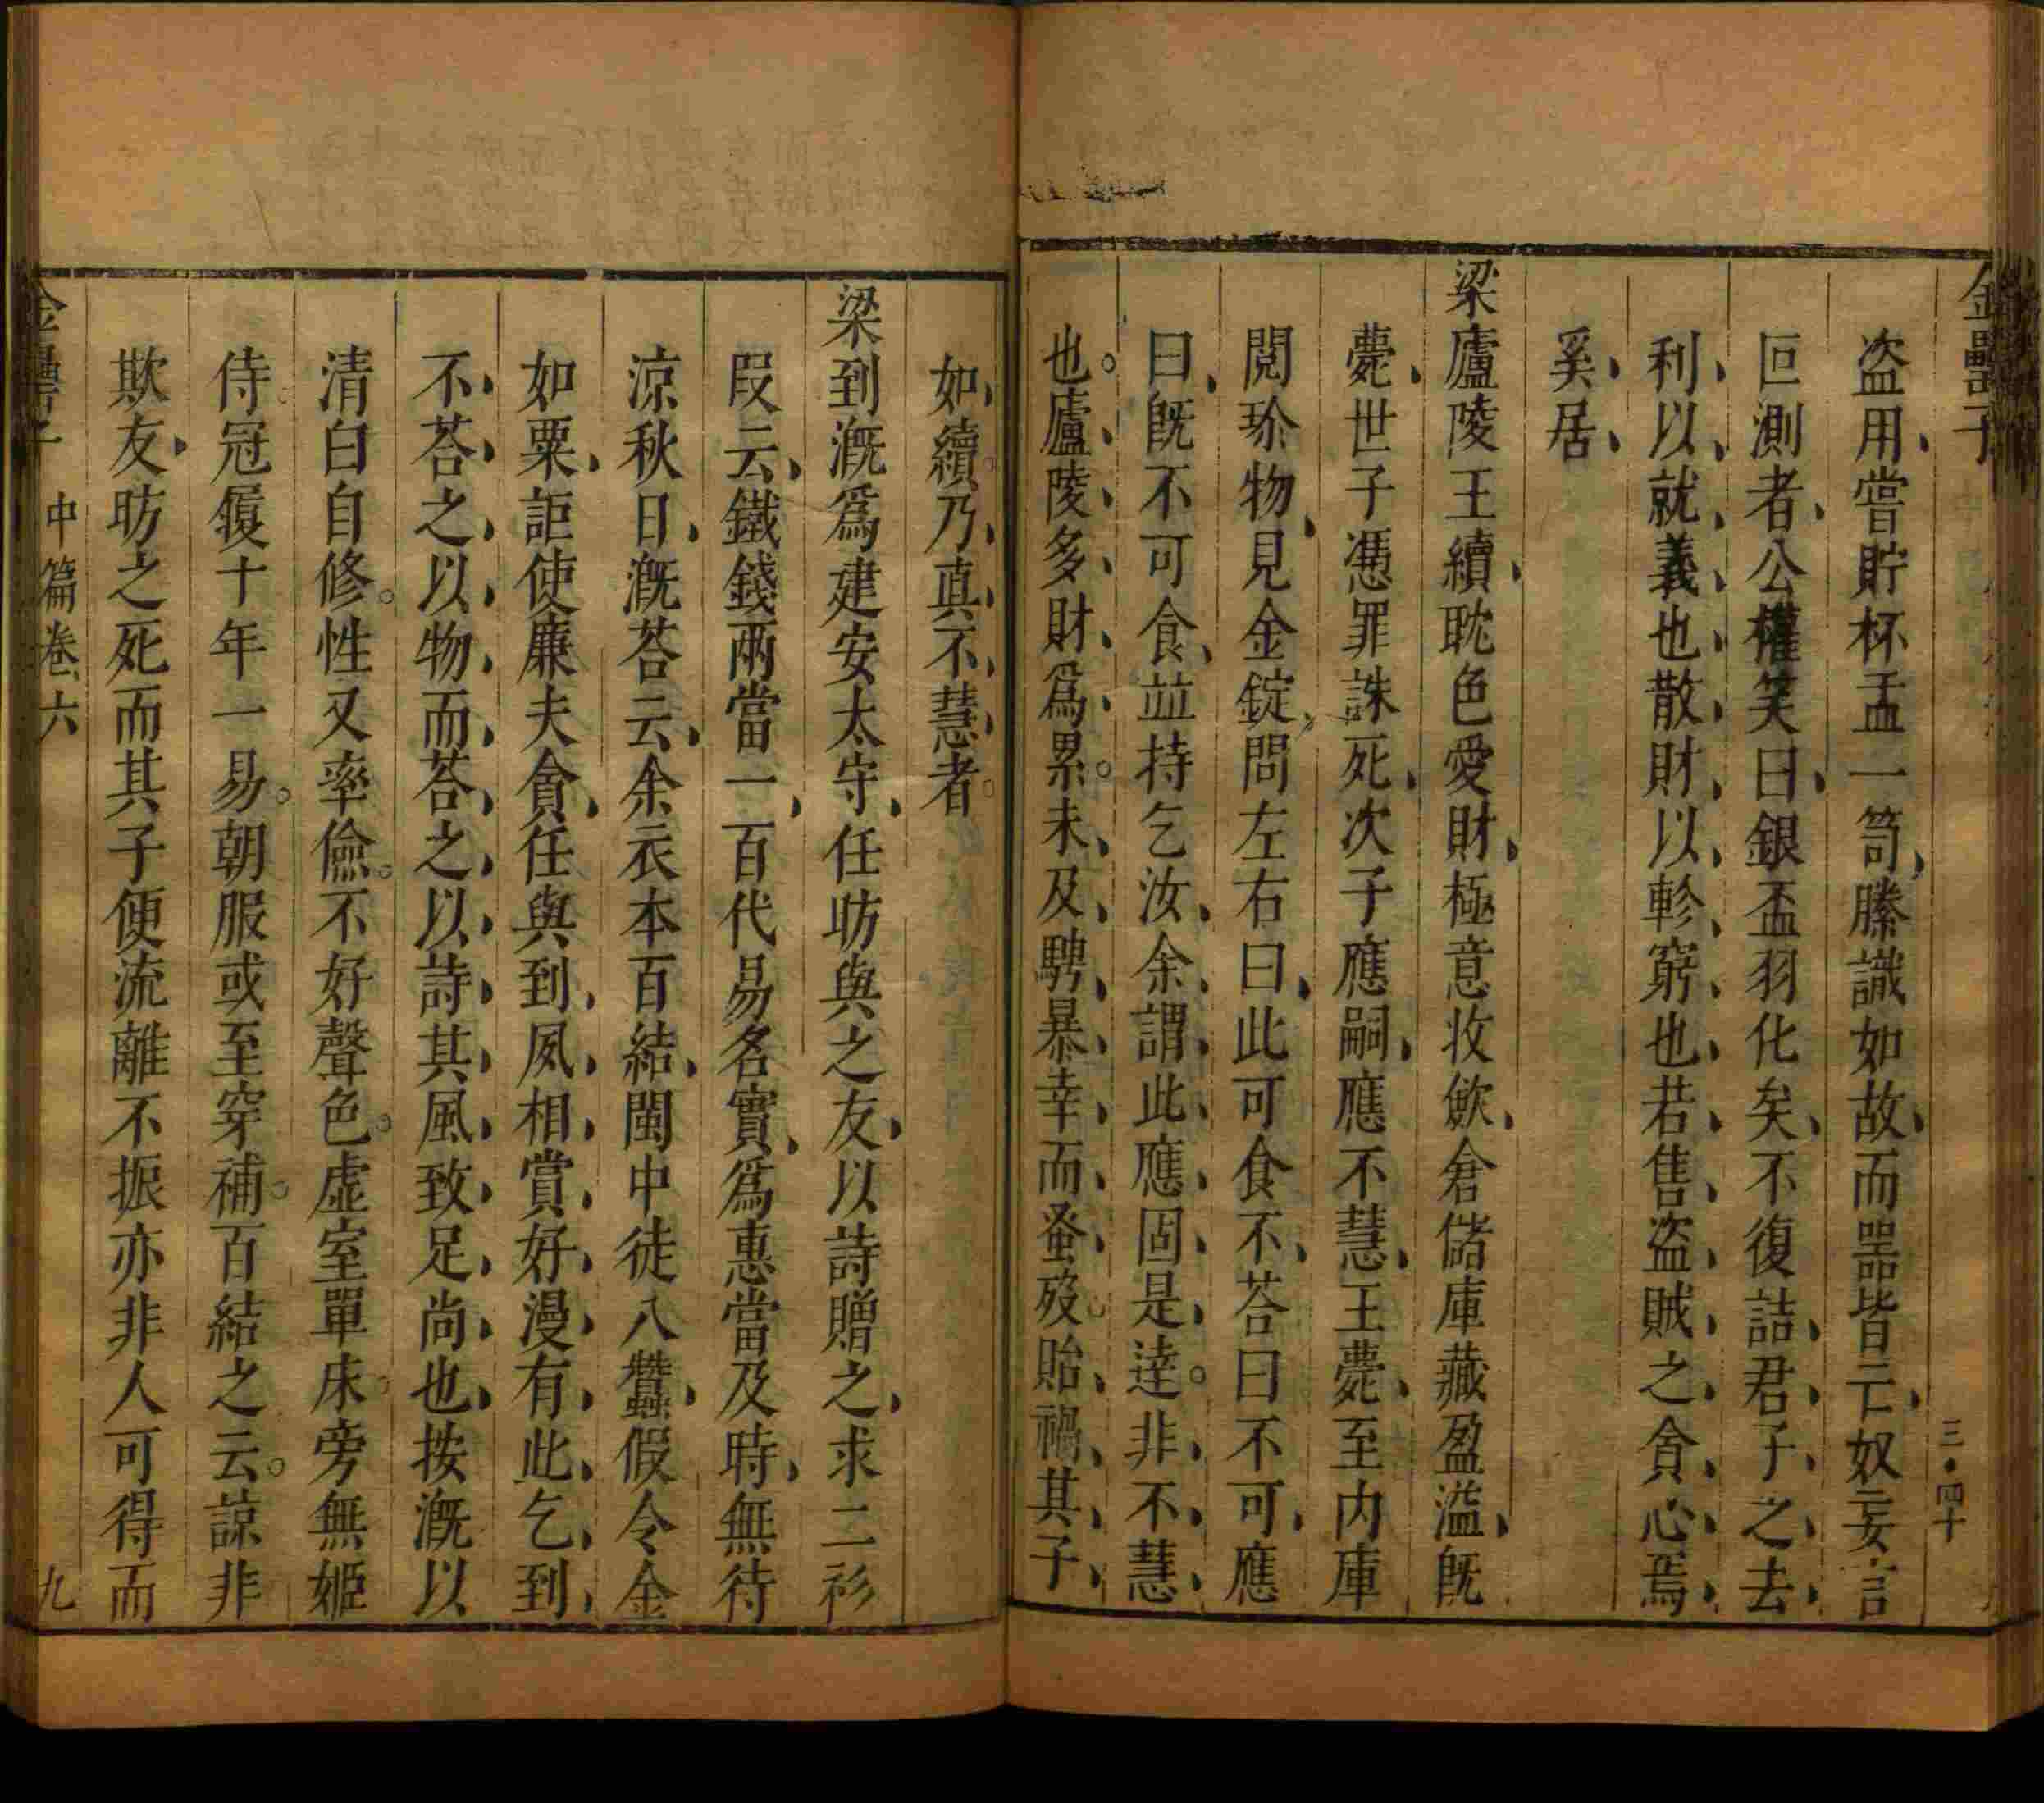 金罍子
三・四十
盗用嘗貯杯盂一笥縢識如故而噐皆亡奴妄言
叵測者公權笑曰銀盃羽化矣不復詰君子之去
利以就義也散財以軫窮也若售盗賊之貪心焉
奚居
梁廬陵王續耽色愛財極意收歛倉儲庫藏盈溢旣
薨世子憑罪誅死次子應嗣應不慧王薨至内庫
閱珎物見金錠問左右曰此可食不荅曰不可應
曰旣不可食並持乞汝余謂此應固是逹非不慧
也廬陵多財爲累未及騁暴幸而蚤殁貽禍其子
如續乃真不慧者
梁到漑爲建安太守任昉與之友以詩贈之求二衫
叚云鐵錢兩當一百代易名實爲惠當及時無待
凉秋日漑荅云余衣本百結閩中徒八蠶假令金
如粟詎使廉夫貪任與到夙相賞好漫有此乞到
不荅之以物而荅之以詩其風致足尚也按漑以
清白自修性又率儉不好聲色虚室單床旁無姬
侍冠履十年一易朝服或至穿補百結之云諒非
欺友昉之死而其子便流離不振亦非人可得而
金罍子 中篇卷六 九